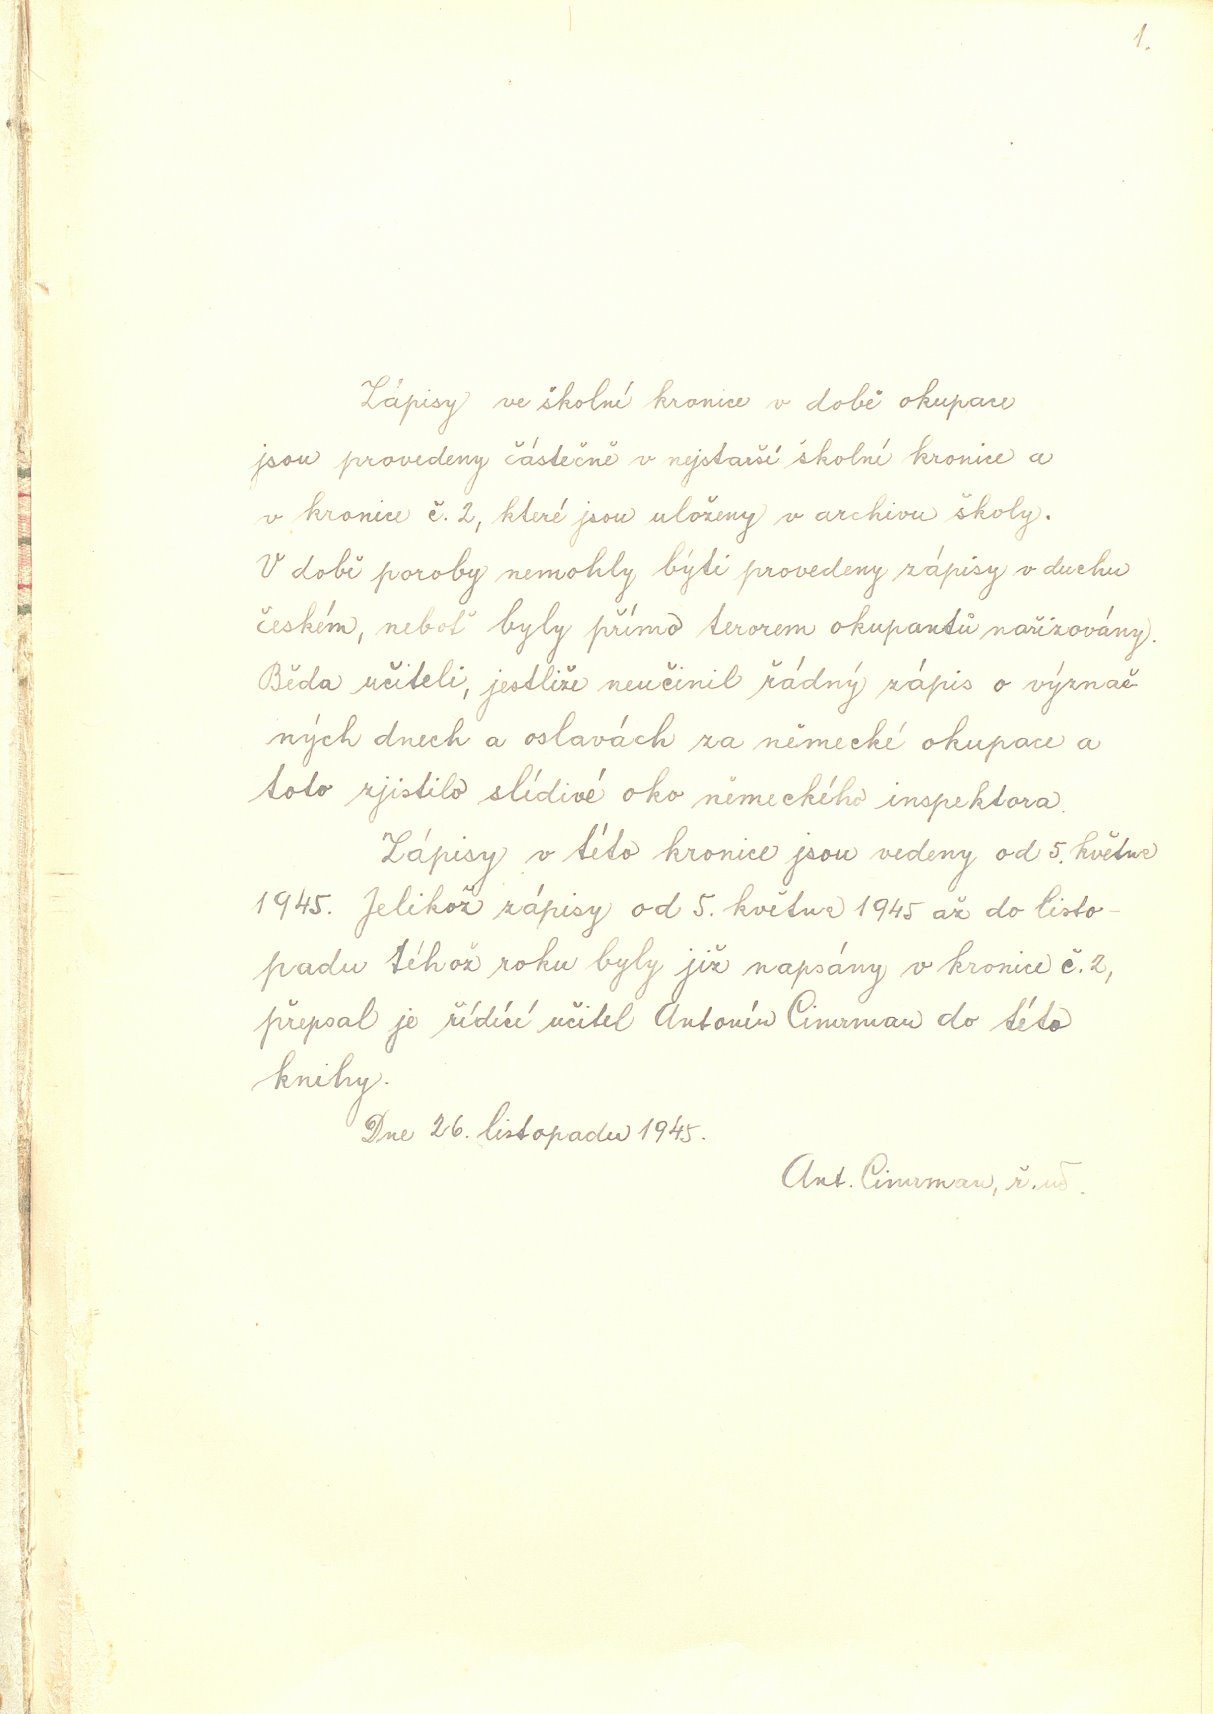 1.
Zápisy ve školní kronice v době okupace
jsou provedeny částečně v nejstarší školní kronice a
v kronice č. 2, které jsou uloženy v archivu školy.
V době poroby nemohly býti provedeny zápisy v duchu
českém, neboť byly přímo terorem okupantů nařizovány.
Běda učiteli, jestliže neučinil řádný zápis o význač-
ných dnech a oslavách za německé okupace a
toto zjistilo slídivé oko německého inspektora.
Zápisy v této kronice jsou vedeny od 5. květnu
1945. Jelikož zápisy od 5. květnu 1945 až do listo-
padu téhož roku byly již napsány v kronice č. 2,
přepsal je řídící učitel Antonín Cimrman do této
knihy.
Dne 26. listopadu 1945.
Ant. Cimrman, ř. uč.